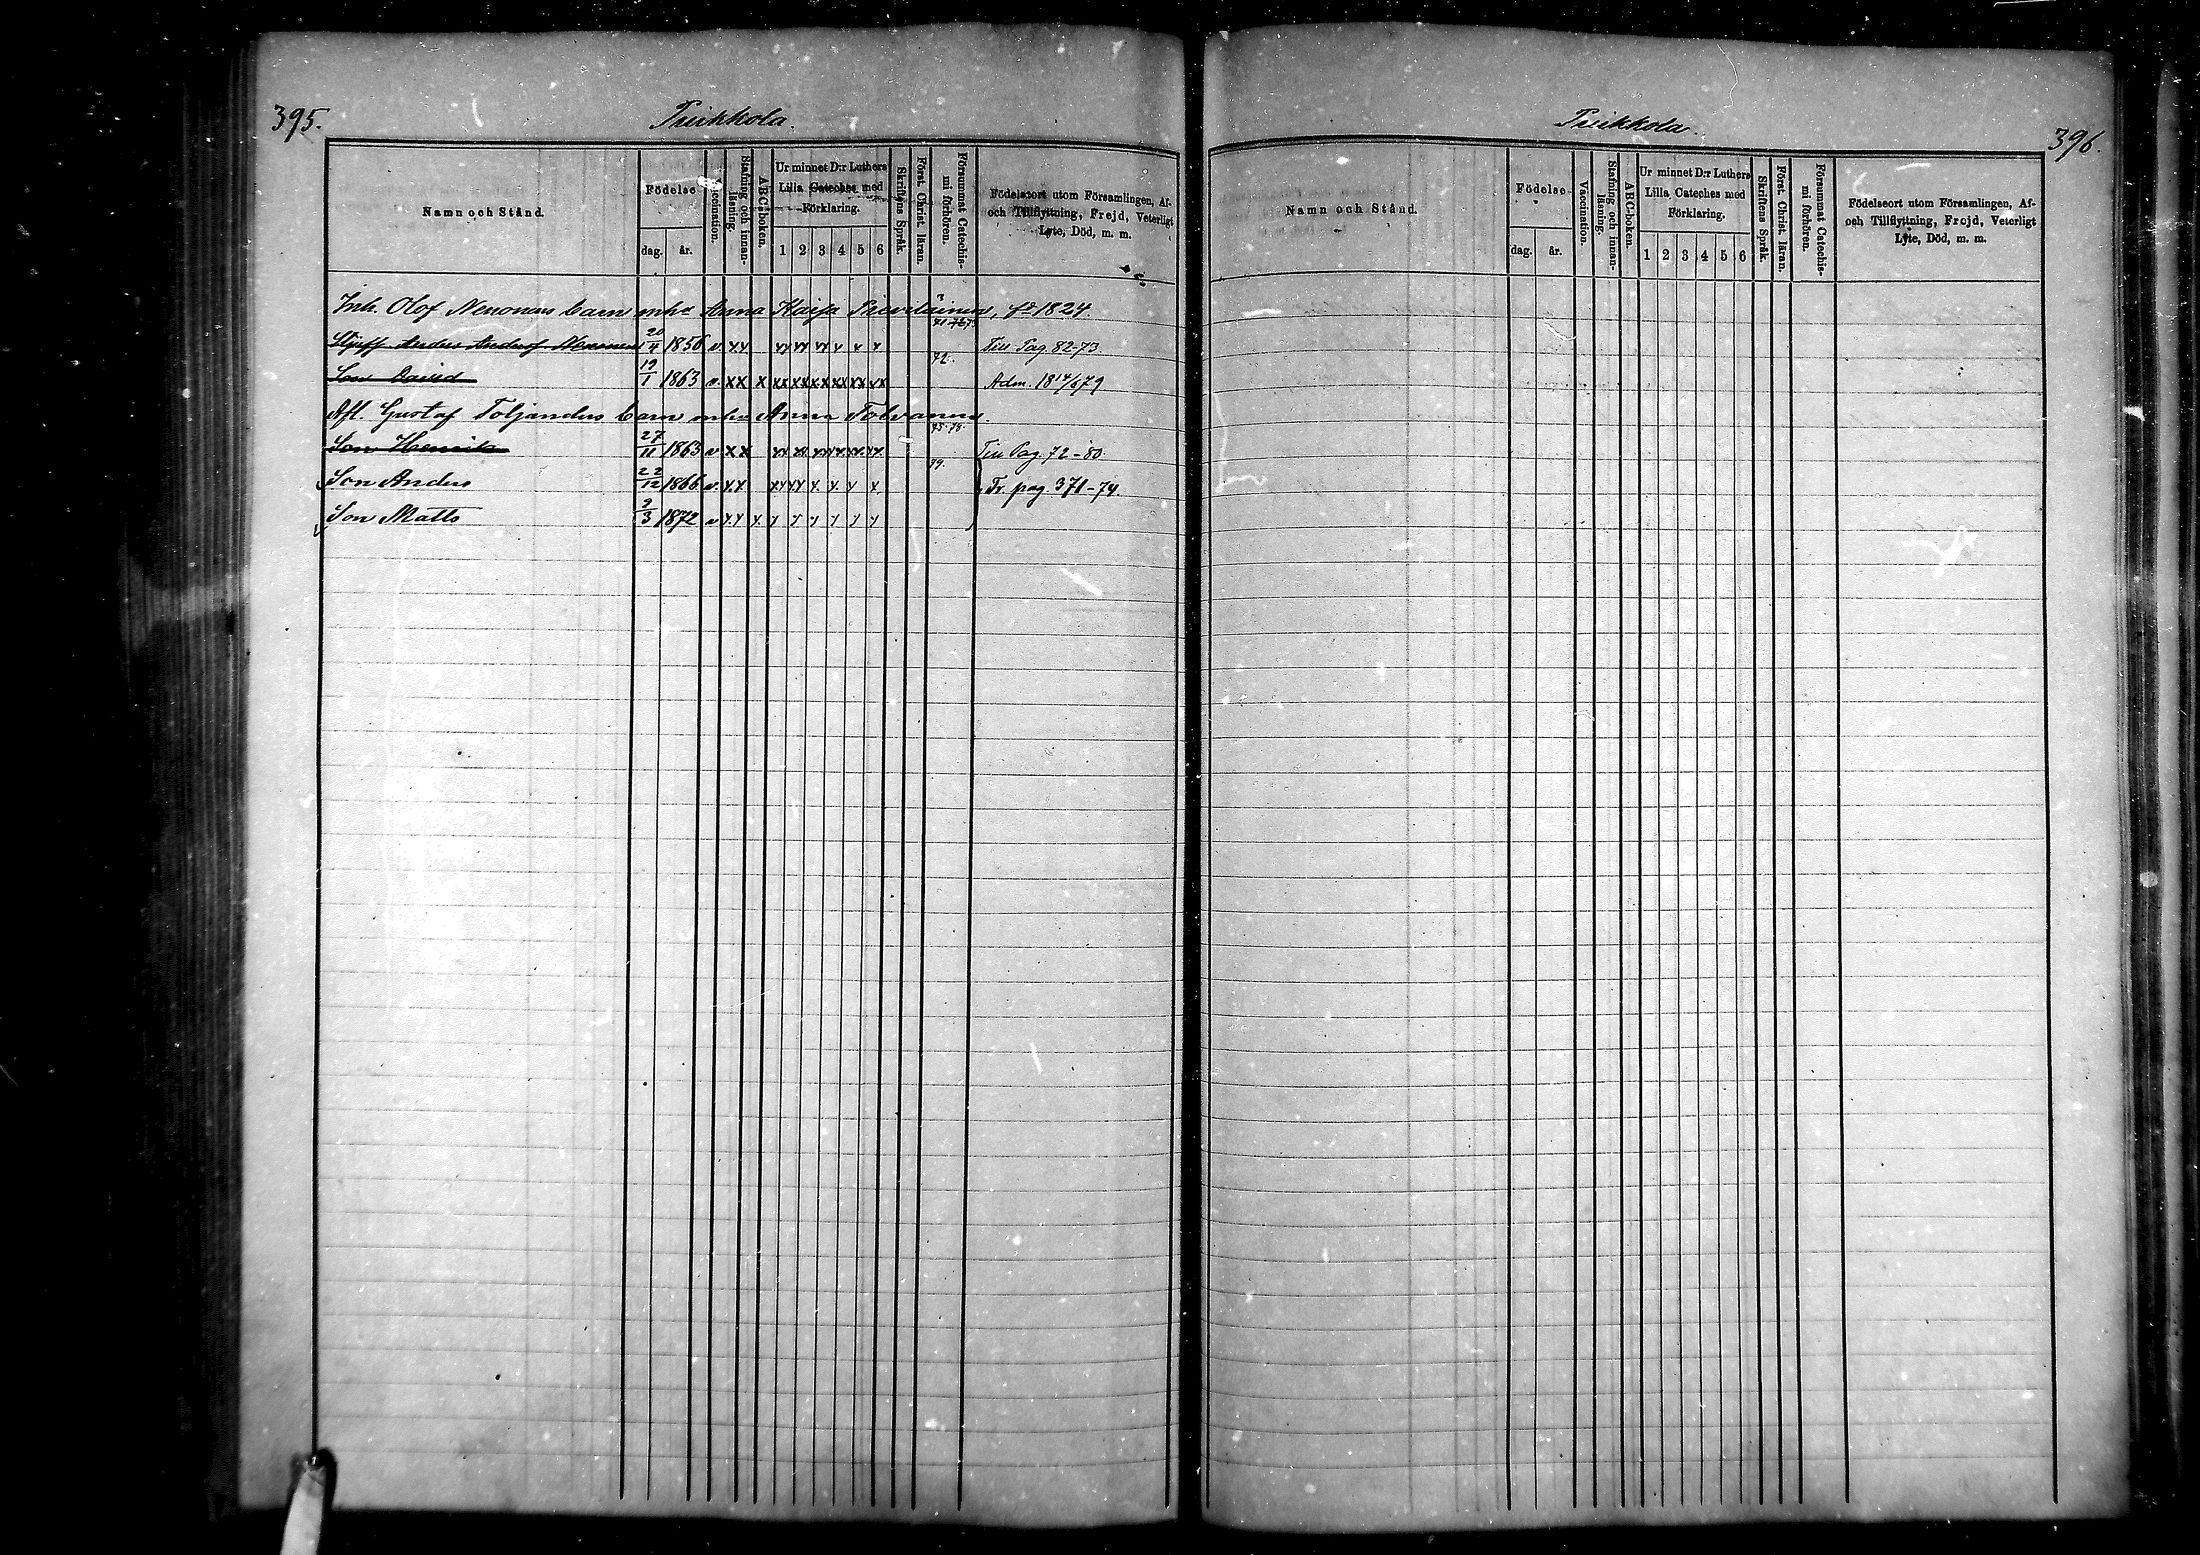 395.
Namn och Stånd.
Födelse
dag.
år.
Vaccination.
Stafning och innan-
läsning.
ABC-boken.
Ur minnet D:r Luthers
Lilla Cateches med
Förklaring.
1 2 3 4 5 6
Skriftens Språk.
Först. Christ. läran.
Försummat Catechis-
mi förhören.
Födelseort utom Församlingen, Af-
och Tillflyttning, Frejd, Veterligt
Lyte, Död, m. m.
Inh. Olof Nenonens barn mhe Anna Kaisa, fd 1824.
Anders Nenonen 20/4 1856 v. xx xx xx xx x x x Till Pag. 82-73
Son David 19/1 1863 v. xx x xx xx xx xx xx xx 72. Adm. 18 14/6 79
Afl. Gustaf Toljanders barn mhe Anna Tolvanen.
Son Henrik 27/11 1863 v xx xx xx xx xx xx xx 75. 78. Till Pag. 72-80.
Son Anders 22/12 1866 v. xx xx xx x. x x x 79. Tr. pag 371-74.
Son Matts 2/3 1872 v xx x. x x x x x x
396.
Namn och Stånd.
Födelse
dag.
år.
Vaccination.
Stafning och innan-
läsning.
ABC-boken.
Ur minnet D:r Luthers
Lilla Cateches med
Förklaring.
1 2 3 4 5 6
Skriftens Språk
Först. Christ. läran.
Försummat Catechis-
mi förhören.
Födelseort utom Församlingen, Af-
och Tillflyttning, Frejd, Veterligt
Lyte, Död, m. m.